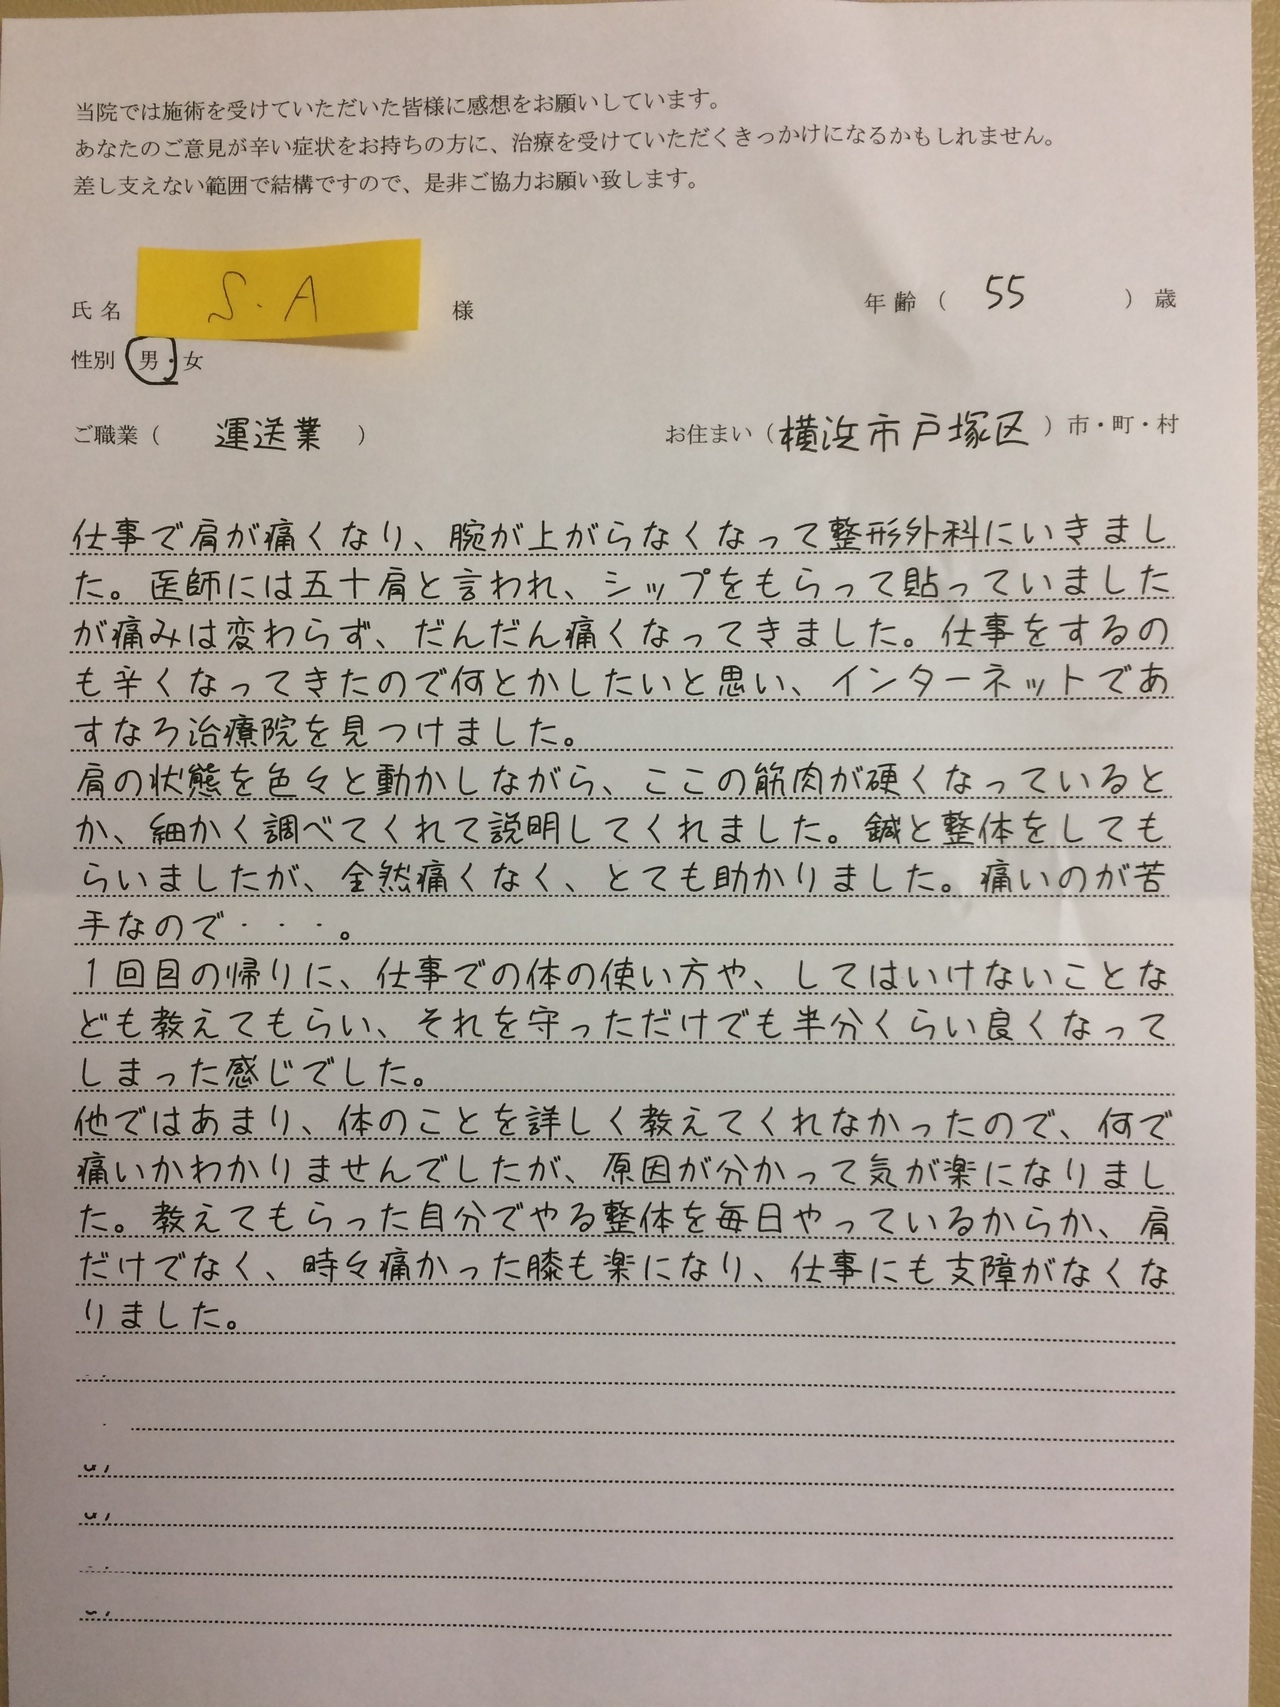 当院では施術を受けていただいた皆様に感想をお願いしています。
あなたのご意見が辛い症状をお持ちの方に、治療を受けていただくきっかけになるかもしれません。
差し支えない範囲で結構ですので、是非ご協力お願い致します。
氏名 S.A 様 年齢( 55 )歳
性別 男・女
ご職業( 運送業 ) お住まい(横浜市戸塚区)市・町・村
仕事で肩が痛くなり、腕が上がらなくなって整形外科にいきまし
た。医師には五十肩と言われ、シップをもらって貼っていました
が痛みは変わらず、だんだん痛くなってきました。仕事をするの
も辛くなってきたので何とかしたいと思い、インターネットであ
すなろ治療院を見つけました。
肩の状態を色々と動かしながら、ここの筋肉が硬くなっていると
か、細かく調べてくれて説明してくれました。鍼と整体をしても
らいましたが、全然痛くなく、とても助かりました。痛いのが苦
手なので・・・。
1回目の帰りに、仕事での体の使い方や、してはいけないことな
ども教えてもらい、それを守っただけでも半分くらい良くなって
しまった感じでした。
他ではあまり、体のことを詳しく教えてくれなかったので、何で
痛いかわかりませんでしたが、原因が分かって気が楽になりまし
た。教えてもらった自分でやる整体を毎日やっているからか、肩
だけでなく、時々痛かった膝も楽になり、仕事にも支障がなくな
りました。